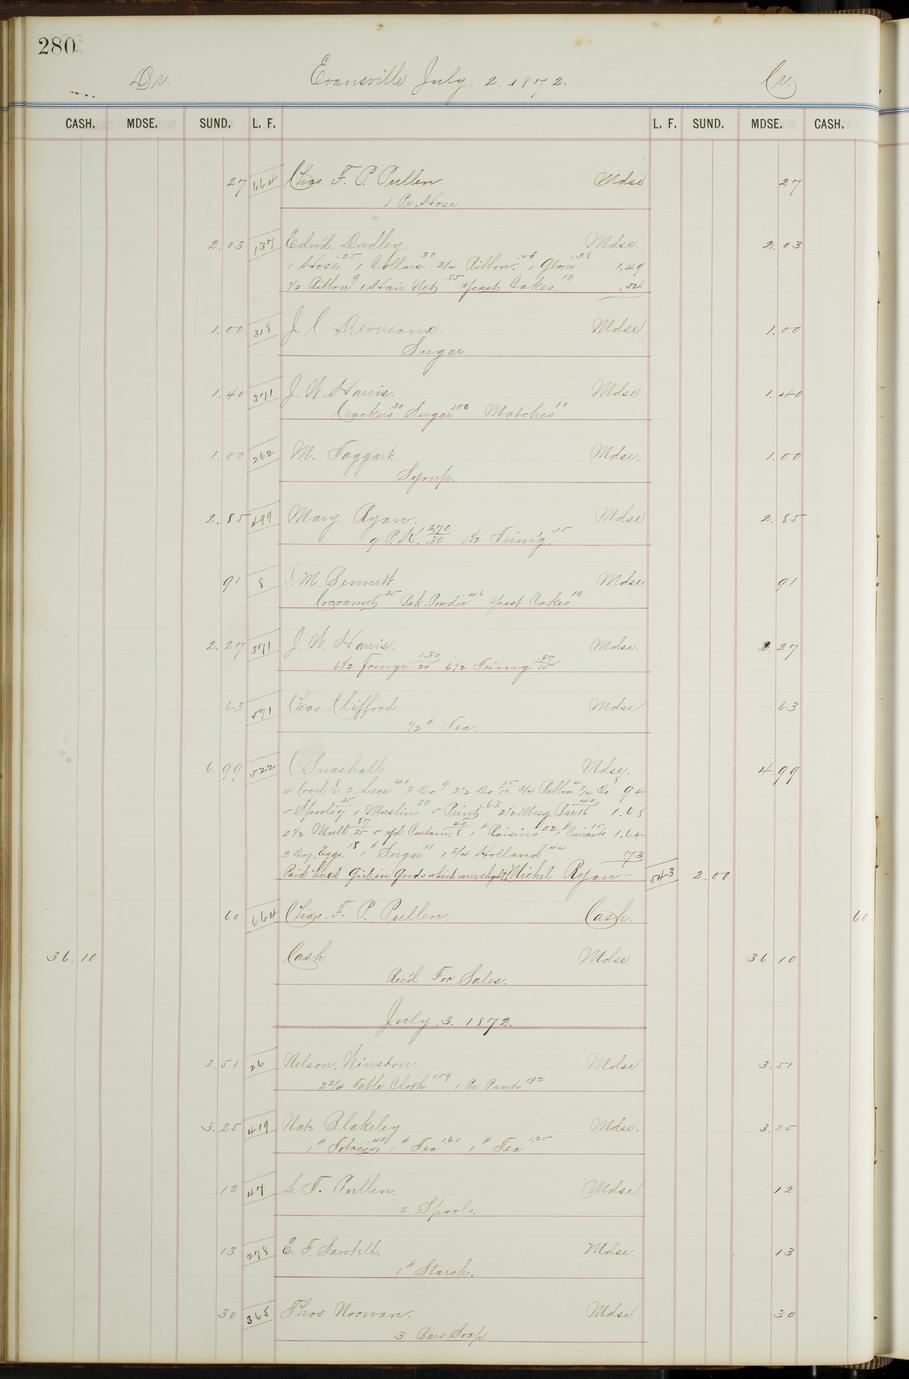 280
Dr. Evansville July. 2. 1872. Cr
CASH. MDSE. SUND. L. F. L. F. SUND. MDSE. CASH.
27 664 Chas. F. P. Pullen Mdse 27
1 Pr. Hose
2.03 137 Edw'd Dudley Mdse. 2.03
1 Hose 25 1 Collars 30 2/4 Ribbon 1 Glove .38 1.49
1/2 Ribbon 9 1 Hair Net 35 Yeast Cakes 10 .54
1.00 318 J. C. Devereaux. Mdse 1.00
Sugar
1.40 371 J. W. Harris. Mdse 1.40
Crackers 30 Sugar 100 Matches 10
1.00 262 M. Taggart. Mdse. 1.00
Syrup.
2.85 499 Mary Ryan. Mdse 2.85
9 P.K. 270/30 1 1/2 Trim'g. 15
91 8 M. Bennett Mdse 91
Cocoanut 35 Bak. Powder 46 Yeast Cakes 10
2.27 371 J. W. Harris. Mdse 2.27
6 1/2 Fringe 1.30/20 6 1/2 Trimg. 97/15
63 571 Chas. Clifford Mdse 63
1/2 # Tea.
6.99 522 C Snashall Mdse. 4.99
2 Lace 40 3 Do 9 2 1/2 Do 25/10 Ribbon Do 94
Spools 1 Muslin 20 Print 63 2 1/2 Misq. Bar 40/16 1.68
2 1/2 Mull 87/35 5 yd Curtain 40/8 1 # Raisins 22 1 # Currants 15 1.64
2 Doz. Eggs. 18 1 # Sugar 11 1 3/4 Holland 44 73
Paid hired Girl in Goods which were chgd to Michel Ryan — 543 2.00
60 664 Chas. F. P. Pullen. Cash. 60
36.10 Cash Mdse 36 10
Rec'd For Sales.
July. 3. 1872.
3.51 26 Nelson Winston. Mdse 3.51
2 3/4 Table Cloth 159 1 Pr Pants 192
3.25 419 Nate Blakeley Mdse. 3.25
1 # Tobacco 40 1 # Tea 160 1 # Tea 125
12 47 S. T. Pullen. Mdse 12
2 Spools.
13 278 E. F. Sawtell. Mdse 13
1 # Starch.
30 365 Thos Noonan. Mdse 30
3 Bars Soap